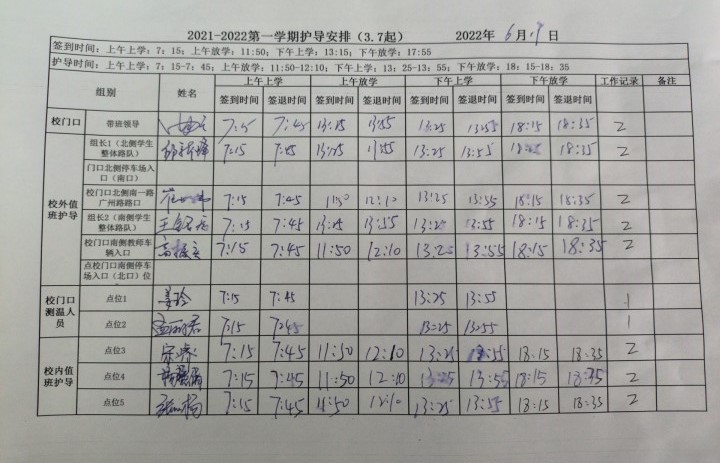 2021-2022第一学期护导安排（3.7起） 2022年 6月 日
签到时间：上午上学：7：15；上午放学：11:50；下午上学：13:15；下午放学：17:55
护导时间：上午上学：7：15-7：45；上午放学：11:50-12:10；下午上学：13：25-13：55；下午放学：18：15-18：35
组别 姓名 上午上学 上午放学 下午上学 下午放学 工作记录 备注
签到时间 签退时间 签到时间 签退时间 签到时间 签退时间 签到时间 签退时间
校门口 带班领导 7:15 7:45 13:25 13:55 13:25 13:55 18:15 18:35 2
校外值班护导
组长1（北侧学生整体路队） 7:15 7:45 13:25 13:55 13:25 13:55 18:35 2
门口北侧停车场入口（南口）
校门口北侧南一路广州路路口 7:15 7:45 12:10 13:25 13:55 18:15 18:35 2
组长2（南侧学生整体路队） 7:15 7:45 13:25 13:55 13:25 13:55 18:15 18:35 2
校门口南侧教师车辆入口 7:15 7:45 11:50 12:10 13:25 13:55 18:15 18:35 2
点校门口南侧停车场入口（北口）位
校门口测温人员
点位1 姜玲 7:15 7:45 13:25 13:55 1
点位2 7:15 7:45 13:25 13:55 1
校内值班护导
点位3 7:15 7:45 11:50 12:10 13:25 13:55 18:15 18:35 2
点位4 7:15 7:45 11:50 12:10 13:25 13:55 18:15 18:35 2
点位5 7:15 7:45 11:50 12:10 13:25 13:55 18:15 18:35 2